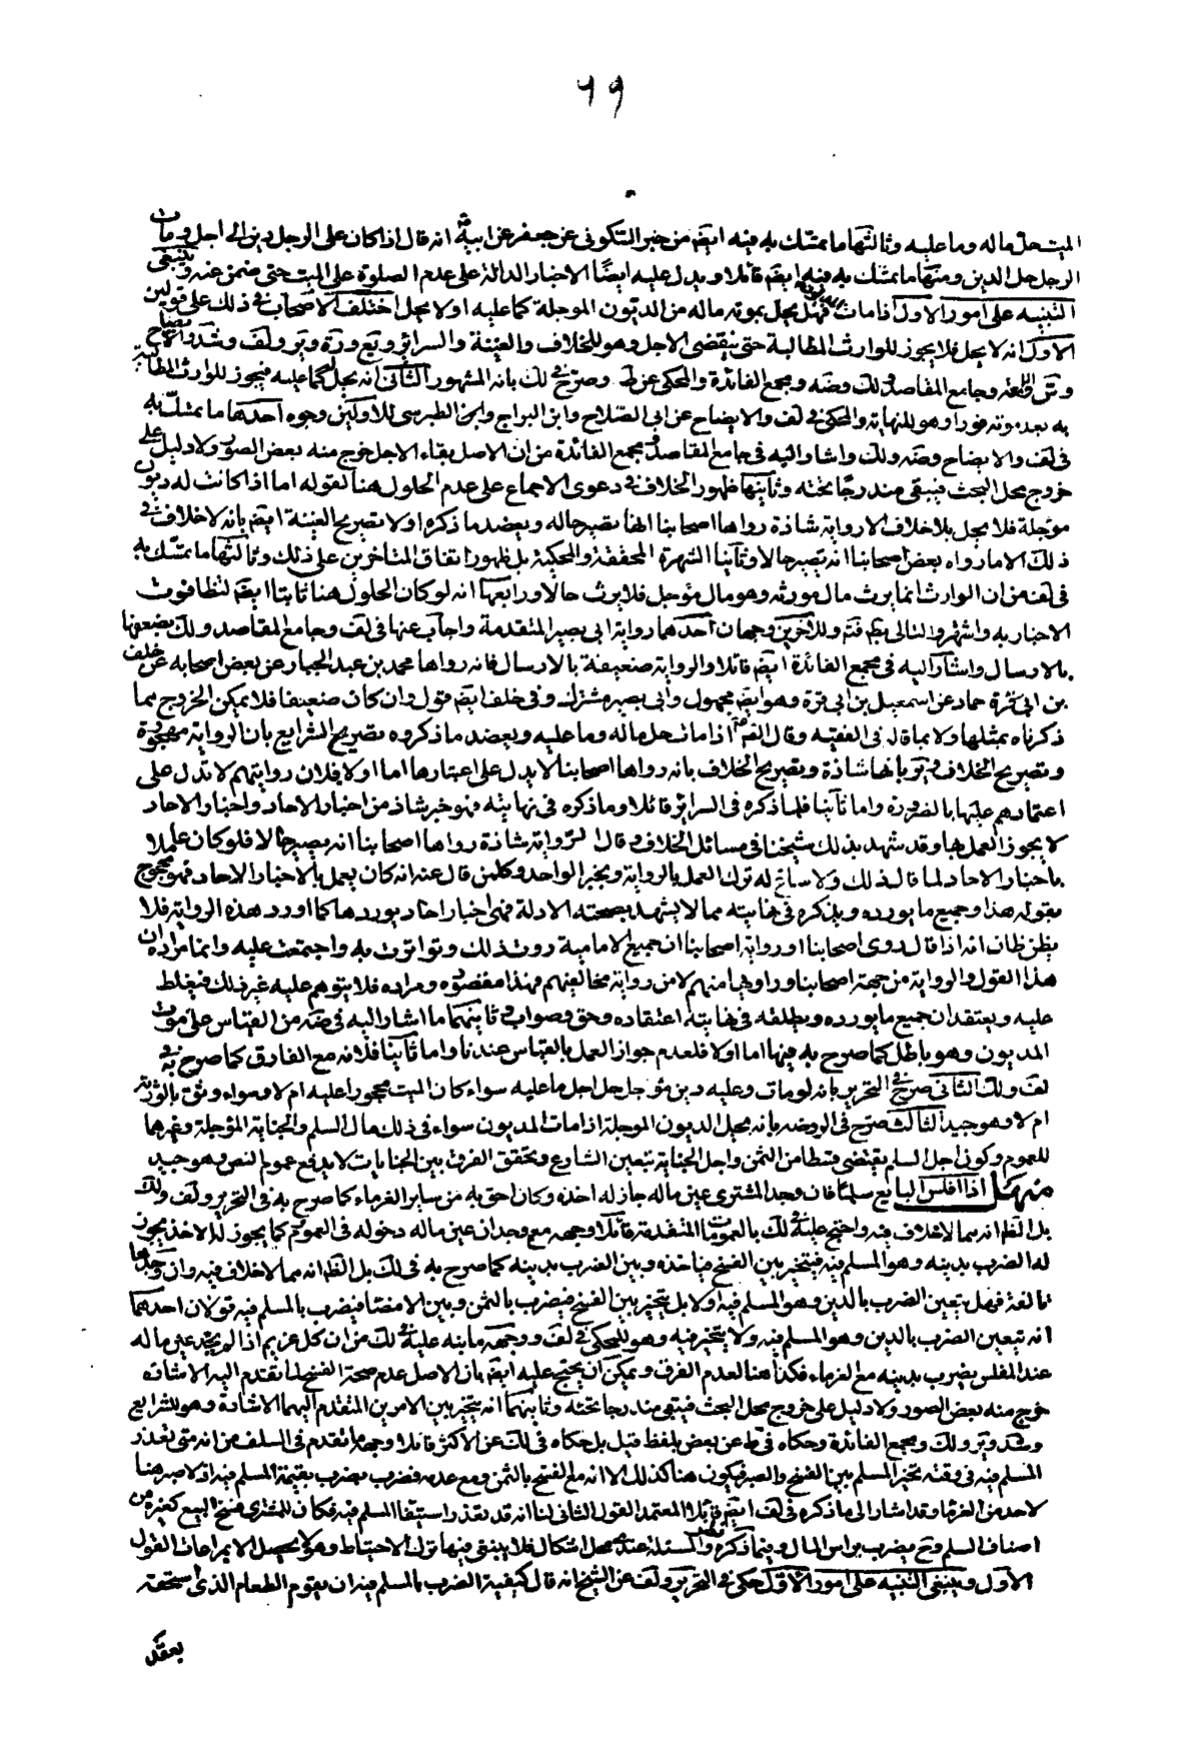 ٦٩
الميت حل ماله وما عليه وثالثها ما تمسك به فيه ايضم من خبر السكونى عن جعفر عن ابيه انه قال اذا كان على الرجل دين الى اجل ومات
الرجل حل الدين ومنها ما تمسك به فيه ايضم قائلا ويدل عليه ايضًا الاخبار الدالة على عدم الصلوة على الميت حتى ضمن عنه وينبغى
التنبيه على امور الاول اذا مات فهل يحل بموته ماله من الديون الموجلة كما عليه او لا يحل اختلف الاصحاب فى ذلك على قولين
الاول انه لا يحل فلا يجوز للوارث المطالبة حتى ينقضى الاجل وهو للخلاف والغنية والسرائر ويع وير ولف وشد والايضاح
وجامع المقاصد ولك وضه ومجمع الفائدة والمحكى عن ط وصرح فى لك بانه المشهور الثانى انه يحل كما عليه فيجوز للوارث المطالبة
به بعد موته فورا وهو للنهاية والمحكى فى لف والايضاح عن ابى الصلاح وابن البراج وابن الطبرسى للاولين وجوه احدها ما تمسك به
فى لف والايضاح وضه ولك واشار اليه فى جامع المقاصد ومجمع الفائدة من ان الاصل بقاء الاجل خرج منه بعض الصور ولا دليل على
خروج محل البحث فيبقى مندرجًا تحته وثانيها ظهور الخلاف فى دعوى الاجماع على عدم الحلول هنا لقوله اما اذا كانت له ديون
موجلة فلا يحل بلا خلاف الا رواية شاذة رواها اصحابنا انها تصير حاله ويعضد ما ذكره اولا تصريح الغنية ايضم بانه لا خلاف فى
ذلك الا ما رواه بعض اصحابنا انه تصير حالا وثانيا الشهرة المحققة والمحكية بل ظهور اتفاق المتاخرين على ذلك وثالثها ما تمسك به
فى لف من ان الوارث انما يرث مال مورثه وهو مال مؤجل فلا يرث حالا ورابعها انه لو كان الحلول هنا ثابتا ايضم لتظافرت
الاخبار به واشتهر والتالى بط فتم وللآخرين وجهان احدهما رواية ابى بصير المتقدمة واجاب عنها فى لف وجامع المقاصد ولك بضعفها
بالارسال واشار اليه فى مجمع الفائدة ايضم قائلا والرواية ضعيفة بالارسال فانه رواها محمد بن عبد الجبار عن بعض اصحابه عن خلف
بن حماد عن اسمعيل بن ابى قرة وهو ايضم مجهول وابى بصير مشترك وفى خلف ايضم قول وان كان ضعيفا فلا يمكن الخروج مما
ذكرناه بمثلها ولا بما قال فى الفقيه وقال الصم اذا مات حل ماله وما عليه ويعضد ما ذكروه تصريح الشرايع بان الرواية مهجورة
وتصريح الخلاف بانها شاذة وتصريح الخلاف بانه رواها اصحابنا لا يدل على اعتبارها اما اولا فلان روايتهم لا تدل على
اعتمادهم عليها بالضرورة واما ثانيا فلما ذكره فى السرائر قائلا وما ذكره فى نهايته فهو خبر شاذ من اخبار الاحاد واخبار الاحاد
لا يجوز العمل بها وقد شهد بذلك شيخنا فى مسائل الخلاف وقال الرواية شاذة رواها اصحابنا انه يصير حالا فلو كان عاملا
باخبار الاحاد لما قال ذلك ولا ساغ له ترك العمل بالرواية وبخبر الواحد وكلمن قال عنه انه كان يعمل بالاخبار الاحاد فهو محجوج
بقوله هذا وجميع ما يورده ويذكره فى نهايته مما لا يشهد بصحته الادلة فهى اخبار احاد يوردها كما اورد هذه الرواية فلا
يظن ظان انه اذا قال روى اصحابنا او رواية اصحابنا ان جميع الامامية روت ذلك وتواترت به واجتمعت عليه وانما مراده ان
هذا القول والرواية من جهة اصحابنا وراويها منهم لا من رواية مخالفيهم فهذا مقصوده ومراده فلا يتوهم عليه غير ذلك فيغلط
عليه ويعتقد ان جميع ما يورده ويطلقه فى نهايته اعتقاده وحق وصواب وثانيهما ما اشار اليه فى ضه من القياس على موت
المديون وهو باطل كما صرح به فيها اما اولا فلعدم جواز العمل بالقياس عندنا واما ثانيا فلانه مع الفارق كما صرح به فى
لف ولك الثانى صرح فى التحرير بانه لو مات وعليه دين مؤجل حل اجل ما عليه سواء كان الميت محجورا عليه ام لا وسواء وثق بالورثة
ام لا وهو جيد الثالث صرح فى الروضه بانه يحل الديون الموجلة اذا مات المديون سواء فى ذلك مال السلم والجناية المؤجلة وغيرها
للعموم وكون اجل السلم يقتضى قسطا من الثمن واجل الجناية بتعيين الشارع وتحقق الفرق بين الجنايات لا يدفع عموم النص وهو جيد
منهل اذا افلس البايع سلمًا فان وجد المشترى عين ماله جاز له اخذه وكان احق به من ساير الغرماء كما صرح به فى التحرير ولف ولك
بل الظ انه مما لا خلاف فيه واحتج عليه فى لك بالعمومات المتقدمة قائلا وجهه مع وجدان عين ماله دخوله فى العموم كما يجوز له الاخذ يجوز
له الضرب بدينه وهو المسلم فيه فيتخير بين الفسخ فياخذه وبين الضرب بدينه كما صرح به فى لك بل الظ انه مما لا خلاف فيه وان وجدها
تالفة فهل يتعين الضرب بالدين وهو المسلم فيه او لا بل يتخير بين الفسخ فيضرب بالثمن وبين الامضا فيضرب بالمسلم فيه قولان احدهما
انه تيعين الضرب بالدين وهو المسلم فيه ولا يتخير فيه وهو للمحكى فى لف ووجهه ما نبه عليه فى لك من ان كل غريم اذا لم يجد عين ماله
عند المفلس يضرب بدينه مع الغرماء فكذا هنا لعدم الفرق ويمكن ان يحتج عليه ايضم بان الاصل عدم صحة الفسخ لما تقدم اليه الاشارة
خرج منه بعض الصور ولا دليل على خروج محل البحث فيبقى مندرجا تحته وثانيهما انه يتخير بين الامرين المتقدم اليهما الاشارة وهو للشرايع
وشد وير ولك ومجمع الفائدة وحكاه فى ط عن بعض بلفظ قيل بل حكاه فى لك عن الاكثر قائلا وجهه ما تقدم فى السلف من انه متى تعذر
المسلم فيه فى وقته تخير المسلم بين الفسخ والصبر فيكون هنا كذلك الا انه مع الفسخ بالثمن ومع عدمه فضرب يضرب بقيمة المسلم فيه اذ لا صبر هنا
لاحد من الغرما وقد اشار الى ما ذكره فى لف ايضم قائلا المعتمد القول الثانى لنا انه قد تعذر استيفا المسلم فيه فكان للمشترى فسخ البيع كغيره من
اصناف السلم وح يضرب براس المال وفيما ذكره نظر والمسئلة عندى محل اشكال فلا ينبغى فيها ترك الاحتياط وهو لا يحصل الا بمراعات القول
الاول وينبغى التنبيه على امور الاول حكى فى التحرير ولف عن الشيخ انه قال كيفية الضرب بالمسلم فيه ان يقوم الطعام الذى استحقه
بعقد